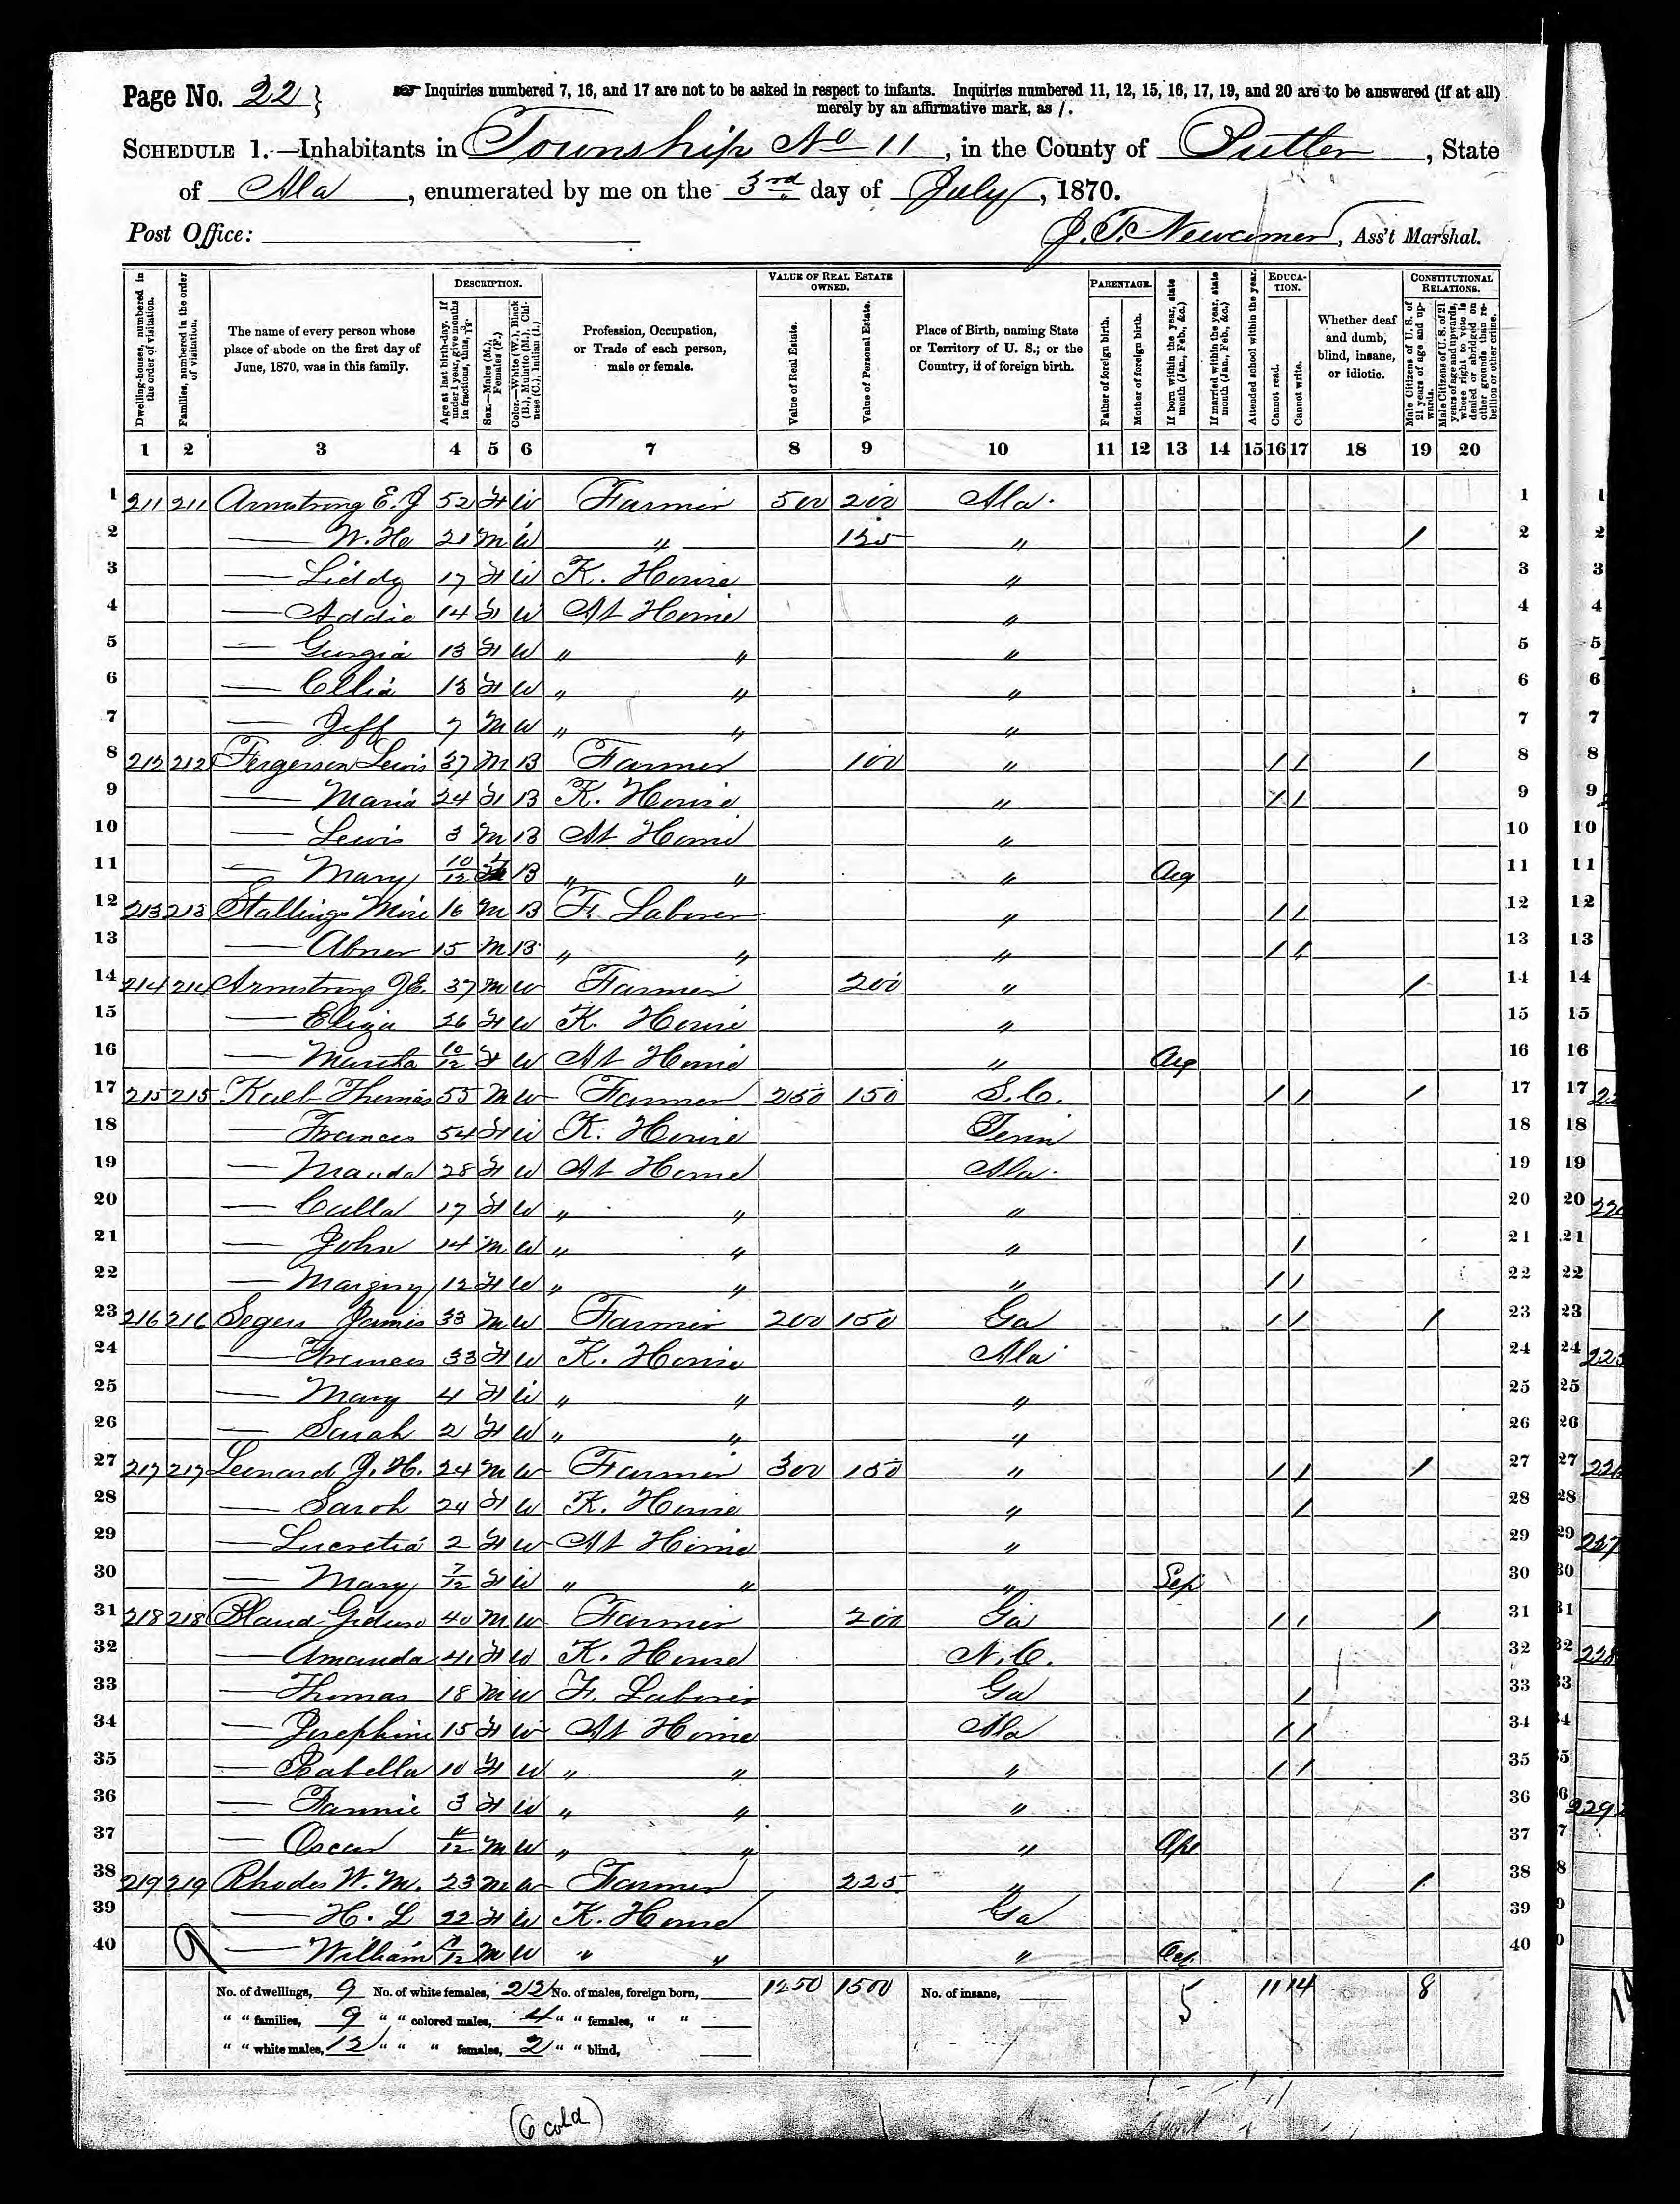 Page No. 22 }
☞ Inquiries numbered 7, 16, and 17 are not to be asked in respect to infants. Inquiries numbered 11, 12, 15, 16, 17, 19, and 20 are to be answered (if at all)
merely by an affirmative mark, as /.
SCHEDULE 1.—Inhabitants in Township No 11, in the County of Butler, State
of Ala, enumerated by me on the 3rd day of July, 1870.
Post Office: J. T. Newcomer, Ass't Marshal.
Dwelling-houses, numbered in the order of visitation.
Families, numbered in the order of visitation.
The name of every person whose place of abode on the first day of June, 1870, was in this family.
DESCRIPTION.
Age at last birth-day. If under 1 year, give months in fractions, thus, 3/12
Sex.—Males (M.), Females (F.)
Color.—White (W.), Black (B.), Mulatto (M.), Chinese (C.), Indian (I.)
Profession, Occupation, or Trade of each person, male or female.
VALUE OF REAL ESTATE OWNED.
Value of Real Estate.
Value of Personal Estate.
Place of Birth, naming State or Territory of U. S.; or the Country, if of foreign birth.
PARENTAGE.
Father of foreign birth.
Mother of foreign birth.
If born within the year, state month (Jan., Feb., &c.)
If married within the year, state month (Jan., Feb., &c.)
Attended school within the year.
EDUCATION.
Cannot read.
Cannot write.
Whether deaf and dumb, blind, insane, or idiotic.
CONSTITUTIONAL RELATIONS.
Male Citizens of U. S. of 21 years of age and upwards.
Male Citizens of U. S. of 21 years of age and upwards, whose right to vote is denied or abridged on other grounds than rebellion or other crime.
1 2 3 4 5 6 7 8 9 10 11 12 13 14 15 16 17 18 19 20
1 211 211 Armstrong E. J 52 F W Farmer 500 200 Ala. 1
2 — W. H 21 M W " 125 " / 2
3 — Liddy 17 F W K. House " 3
4 — Addie 14 F W At Home " 4
5 — Gurgia 13 F W " " " 5
6 — 13 F W " " " 6
7 — Jeff 7 M W " " " 7
8 212 212 Fergerson Lewis 37 M B Farmer 100 " / / / 8
9 — Maria 24 F B K. House " / / 9
10 — Lewis 3 M B At Home " 10
11 — Mary 10/12 F B " " " Aug 11
12 213 213 Stallings 16 M B F. Laborer " / / 12
13 — Abner 15 M B " " " / / 13
14 214 214 Armstrong J. E. 37 M W Farmer 200 " / 14
15 — Eliza 26 F W K. House " 15
16 — Martha 10/12 F W At Home " Aug 16
17 215 215 Kalb Thomas 55 M W Farmer 250 150 S. C. / / / 17
18 — Frances 54 F W K. House Tenn 18
19 — Manda 28 F W At Home Ala. 19
20 — Culla 17 F W " " " 20
21 — John 14 M W " " " / 21
22 — Margury 12 F W " " " / / 22
23 216 216 Segers James 33 M W Farmer 200 150 Ga / / / 23
24 — Frances 33 F W K. House Ala 24
25 — Mary 4 F W " " " 25
26 — Sarah 2 F W " " " 26
27 217 217 Leonard J. H. 24 M W Farmer 300 150 " / / / 27
28 — Sarah 24 F W K. House " / 28
29 — Lucretia 2 F W At Home " 29
30 — Mary 7/12 F W " " " Sep 30
31 218 218 Bland 40 M W Farmer 200 Ga / / / 31
32 — Amanda 41 F W K. House N. C. 32
33 — Thomas 18 M W F. Laborer Ga / 33
34 — Josephine 15 F W At Home Ala / / 34
35 — Isabella 10 F W " " " / / 35
36 — Fannie 3 F W " " " 36
37 — Oscar /12 M W " " " Apr 37
38 219 219 Rhodes W. M. 23 M W Farmer 225 " / 38
39 — H. L 22 F W K. House Ga 39
40 9 — William /12 M W " " " 40
No. of dwellings, 9 No. of white females, 22 No. of males, foreign born, 1250 1500 No. of insane, 5 11 14 8
" " families, 9 " " colored males, 4 " " females, " "
" " white males, 12 " " " females, 2 " " blind,
(6 cold)